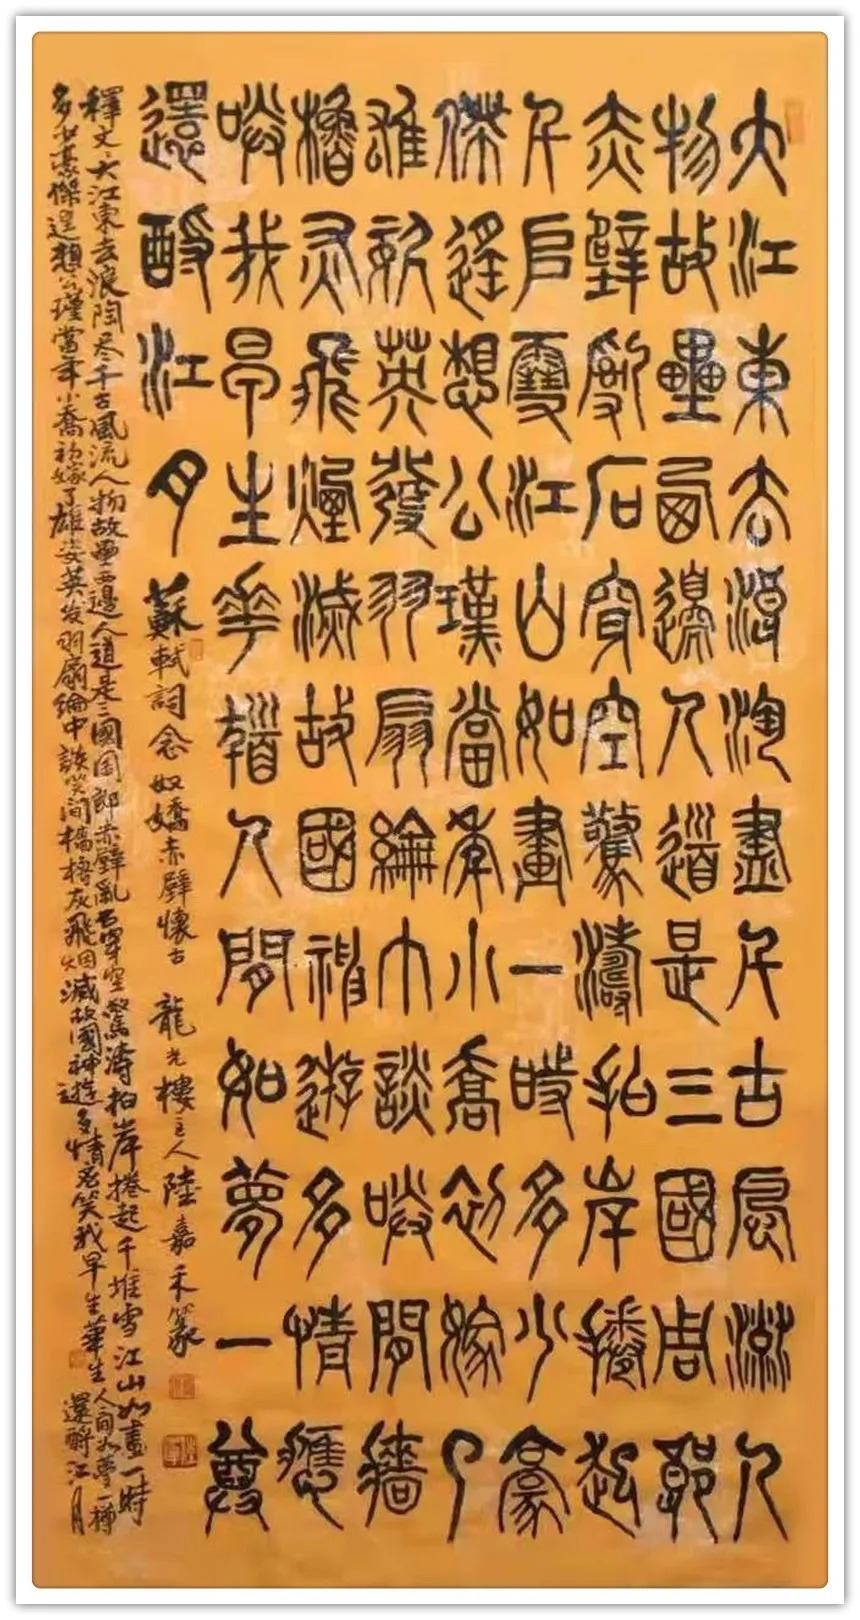 大江東去浪淘盡千古風流人
物故壘西邊人道是三國周郎
赤壁亂石穿空驚濤拍岸捲起
千堆雪江山如畫一時多少豪
傑遙想公瑾當年小喬初嫁了
雄姿英發羽扇綸巾談笑間檣
櫓灰飛煙滅故國神遊多情應
笑我早生華髮人間如夢一尊
還酹江月
蘇軾詞念奴嬌赤壁懷古 龍光樓主人陸嘉禾篆
釋文大江東去浪陶尽千古風流人物故壘西邊人道是三國周郎赤壁亂石穿空驚濤拍岸捲起千堆雪江山如畫一時
多少豪傑遥想公瑾當年小喬初嫁了雄姿英发羽扇綸中談笑间檣櫓灰飛烟滅故國神遊多情笑我早生華生人间如夢一樽
還酹江月